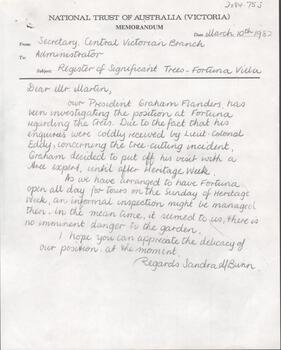 2084.753
NATIONAL TRUST OF AUSTRALIA (VICTORIA)
MEMORANDUM
Date March 10th 1982
From Secretary, Central Victorian Branch
To Administrator
Subject Register of Significant Trees - Fortuna Villa
Dear Mr. Martin,
our President Graham Flanders, has
been investigating the position at Fortuna,
regarding the trees. Due to the fact that his
enquires were coldly received by Lieut-Colonel
Eddy, concerning the tree-cutting incident,
Graham decided to put off his visit with a
tree expert, until after Heritage Week.
As we have arranged to have Fortuna
open all day for tours on the Sunday of Heritage
Week, an informal inspection might be managed
then. In the mean time, it seemed to us, there is
no imminent danger to the garden.
I hope you can appreciate the delicacy of
our position at the moment.
Regards Sandra